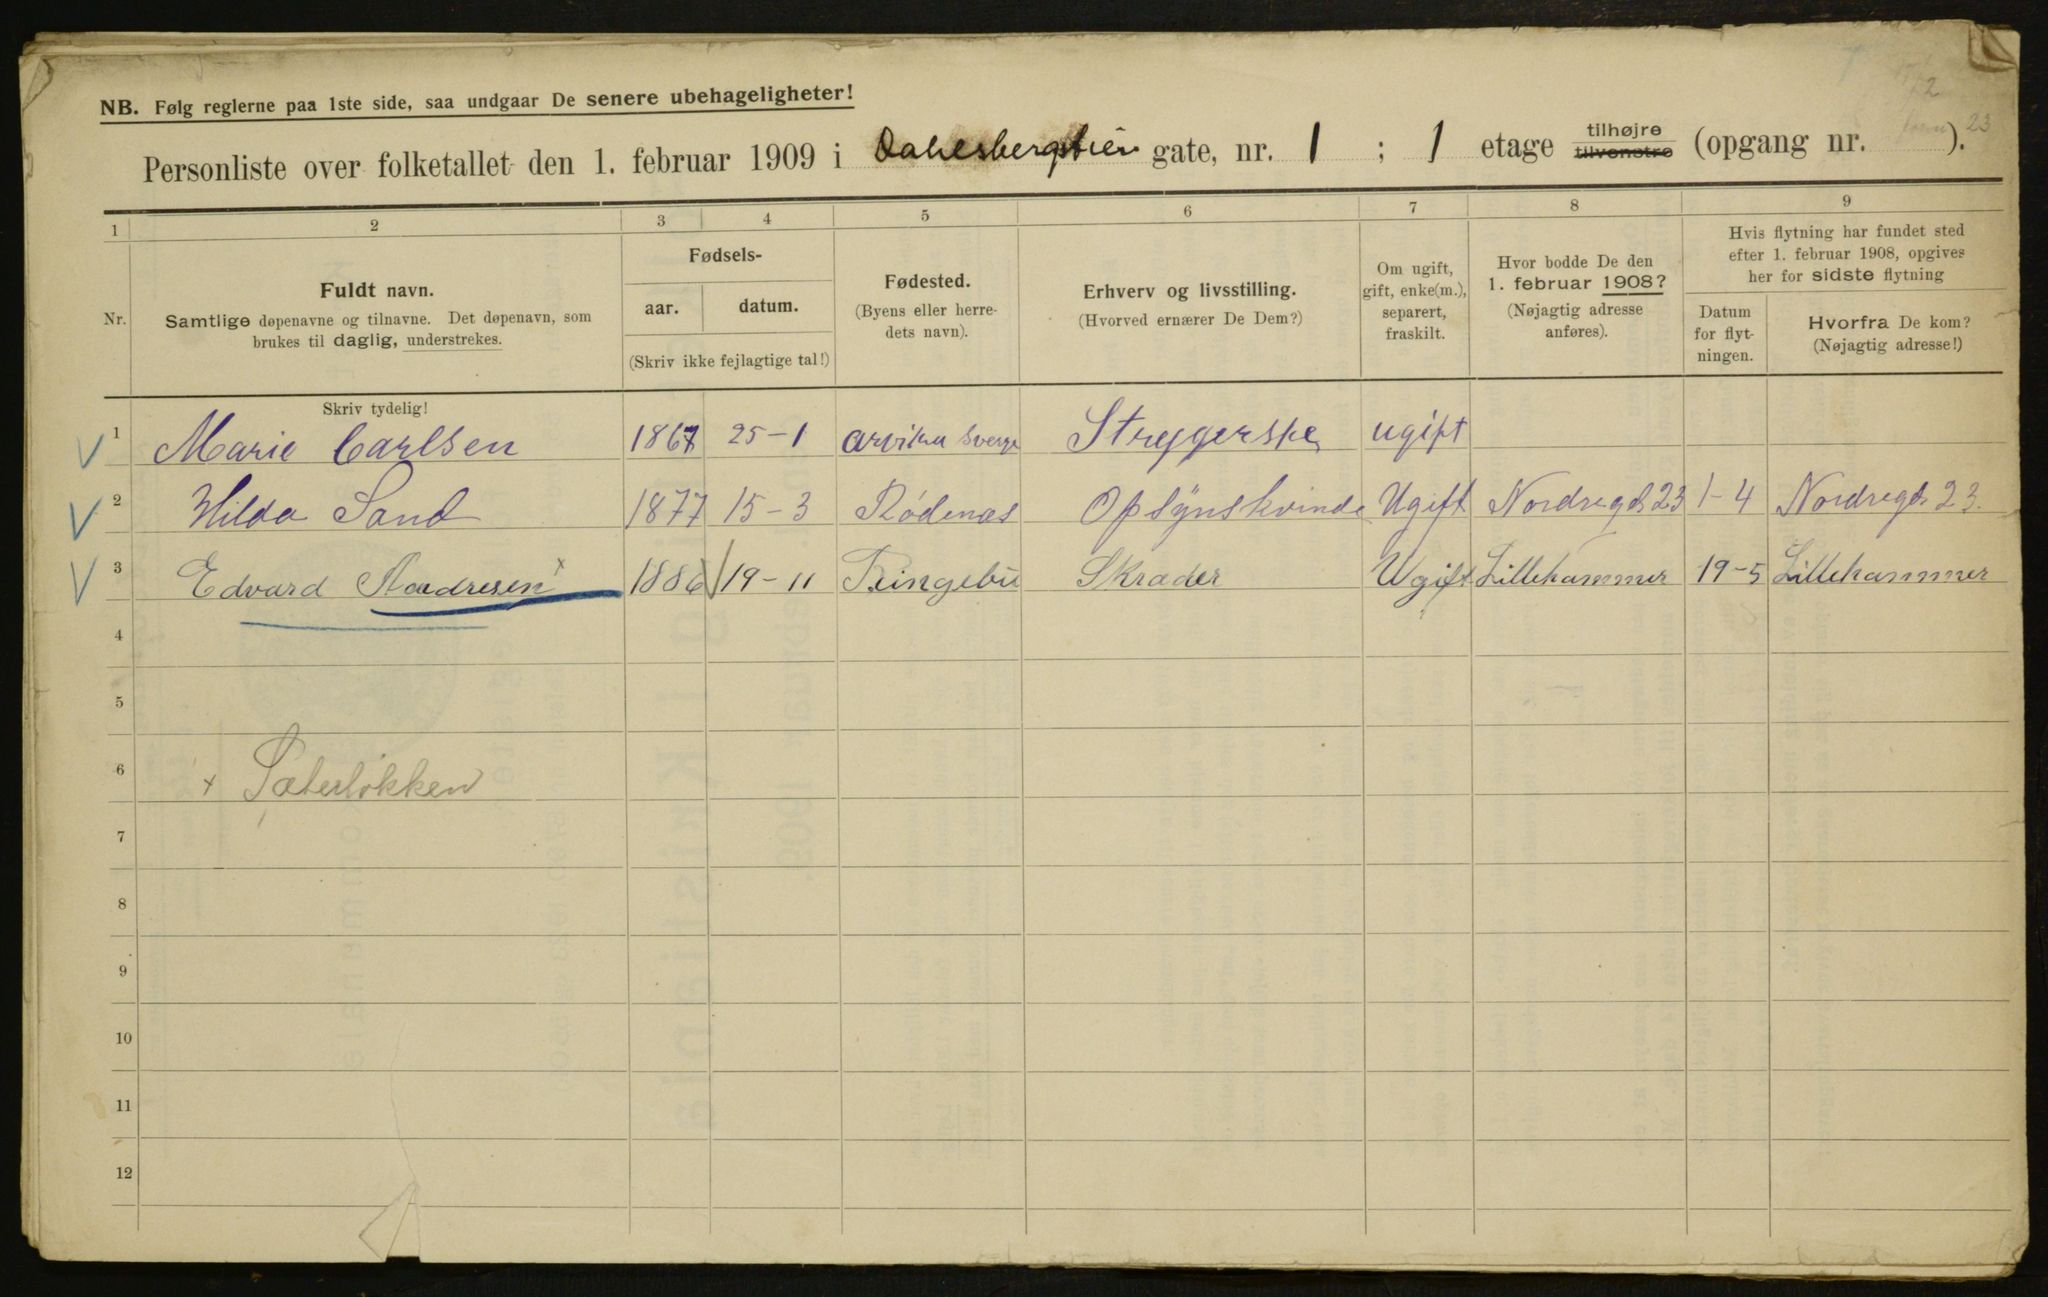 NB. Følg reglerne paa 1ste side, saa undgaar De senere ubehageligheter!
Personliste over folketallet den 1. februar 1909 i Dalesbergstien gate, nr. 1 ; 1 etage tilhøjre tilvenstre (opgang nr. ).
1 2 3 4 5 6 7 8 9
Nr.
Fuldt navn.
Samtlige døpenavne og tilnavne. Det døpenavn, som
brukes til daglig, understrekes.
Fødsels-
aar. datum.
(Skriv ikke fejlagtige tal!)
Fødested.
(Byens eller herre-
dets navn).
Erhverv og livsstilling.
(Hvorved ernærer De Dem?)
Om ugift,
gift, enke(m.),
separert,
fraskilt.
Hvor bodde De den
1. februar 1908?
(Nøjagtig adresse
anføres).
Hvis flytning har fundet sted
efter 1. februar 1908, opgives
her for sidste flytning
Datum
for flyt-
ningen.
Hvorfra De kom?
(Nøjagtig adresse!)
Skriv tydelig!
1 Marie Carlsen 1867 25-1 Arvika Sverge Strygerske ugift
2 Hilda Sand 1877 15-3 Rødenæs Opsynskvinde Ugift Nordregd. 23 1-4 Nordregd. 23.
3 Edvard Andresen x 1886 19-11 Ringebu Skræder Ugift Lillehammer 19-5 Lillehammer
4
5
6 x Sæterløkken
7
8
9
10
11
12